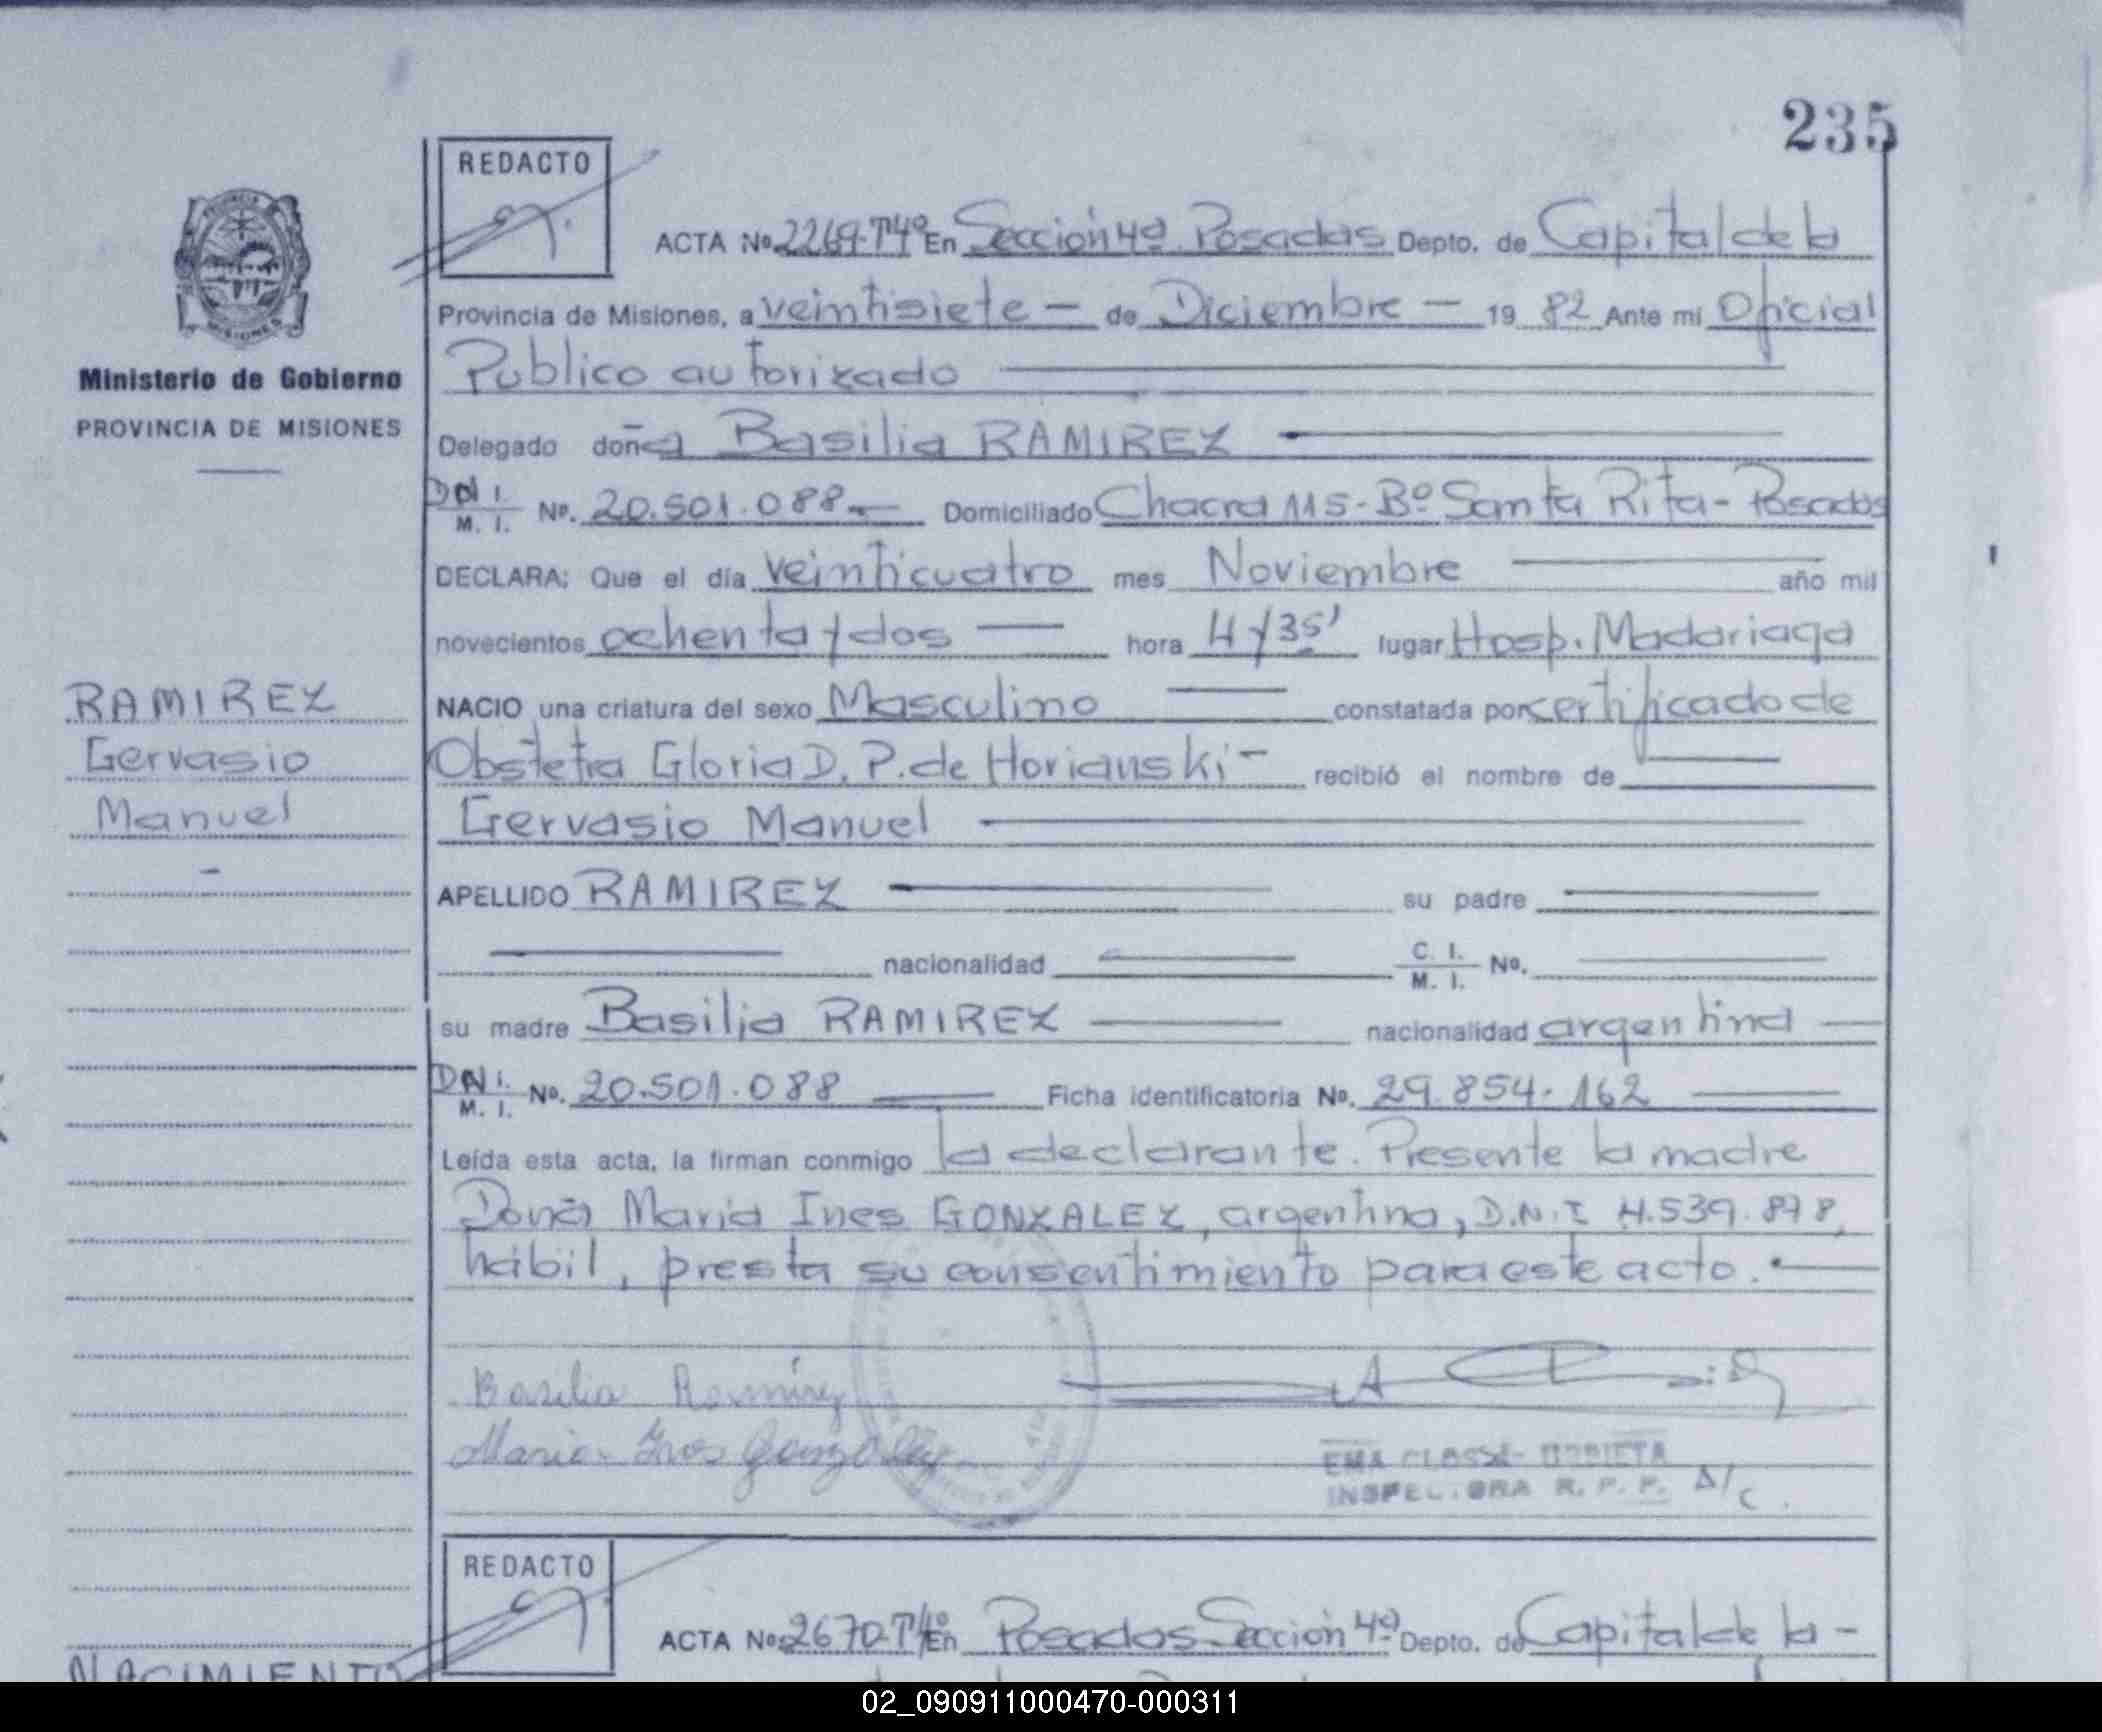 235
REDACTO
ACTA No. 2269-Tº4º En Sección 4ª Posadas Depto. de Capital de la
Provincia de Misiones, a veintisiete — de Diciembre — 19 82 Ante mi Oficial
Publico autorizado
Ministerio de Gobierno
PROVINCIA DE MISIONES
Delegado doña Basilia RAMIREZ
DNI. M. I. Nº. 20.501.088 — Domiciliado Chacra 115-Bº Santa Rita-Posadas
DECLARA: Que el día veinticuatro mes Noviembre año mil
novecientos ochenta y dos — hora 4 y 35' lugar Hosp. Madariaga
RAMIREZ
Gervasio
Manuel
-
NACIO una criatura del sexo Masculino — constatada por certificado de
Obstetra Gloria D. P. de Horianski - recibió el nombre de
Gervasio Manuel
APELLIDO RAMIREZ su padre
nacionalidad C. I. M. I. Nº.
su madre Basilia RAMIREZ nacionalidad argentina
DNI. M. I. Nº. 20.501.088 Ficha identificatoria Nº. 29.854.162
Leída esta acta, la firman conmigo la declarante. Presente la madre
Doña Maria Ines GONZALEZ, argentina, D.N.I 4.539.878,
hábil, presta su consentimiento para este acto.
Basilia Ramírez
Maria Ines Gonzalez
EMA
INSPECTORA R. P. P. A/C.
REDACTO
ACTA No. 2670-Tº4º En Posadas Sección 4ª Depto. de Capital de la -
NACIMIENTO
02_090911000470-000311